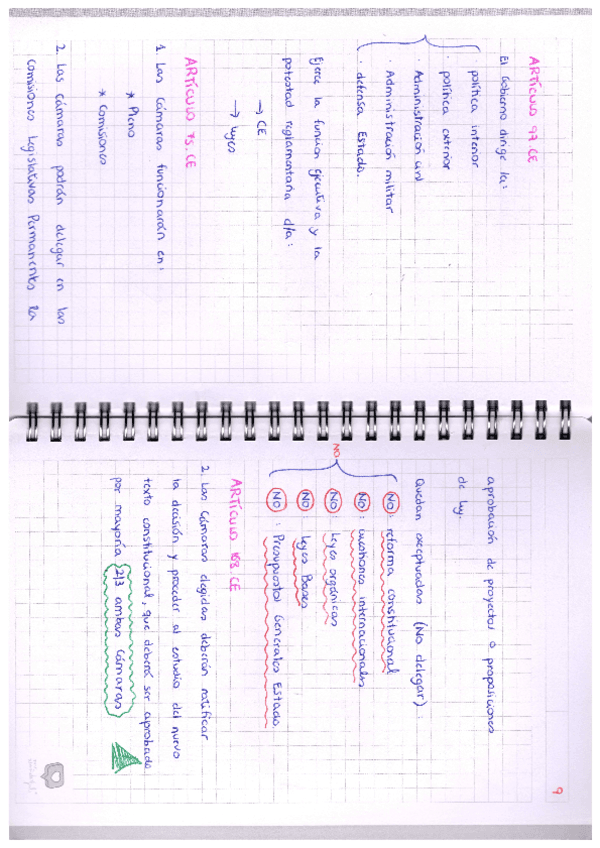 ARTÍCULO 97. CE
El Gobierno dirige la:
· política interior
· política exterior
· Administración civil
· Administración militar
· defensa Estado.
Ejerce la función ejecutiva y la
potestad reglamentaria d/a:
→ CE
→ leyes
ARTÍCULO 75. CE
1. Las Cámaras funcionarán en:
* Pleno
* Comisiones
2. Las cámaras podrán delegar en las
comisiones Legislativas Permanentes la
9
aprobación de proyectos o proposiciones
de ley.
Quedan exceptuadas (No delegar):
NO
NO: reforma constitucional
NO: cuestiones internacionales
NO: leyes orgánicas
NO: leyes Bases
NO: Presupuestos Generales Estado.
ARTÍCULO 168. CE
2. Las Cámaras elegidas deberán ratificar
la decisión y proceder al estudio del nuevo
texto constitucional, que deberá ser aprobado
por mayoría 2/3 ambas Cámaras